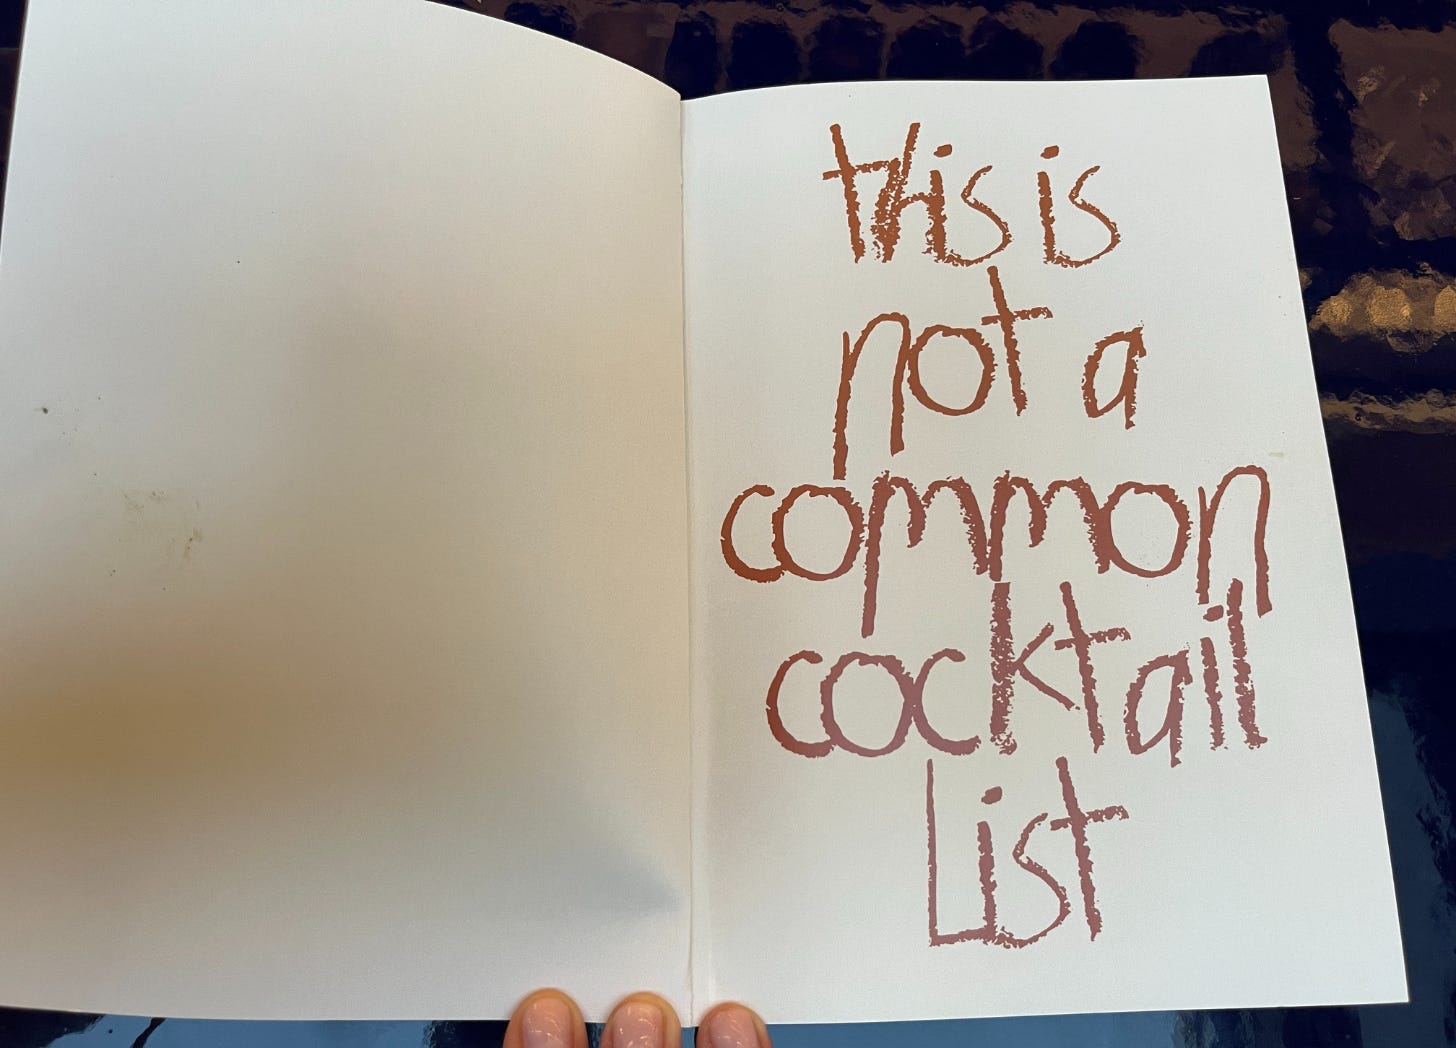 this is
not a
common
cocktail
List